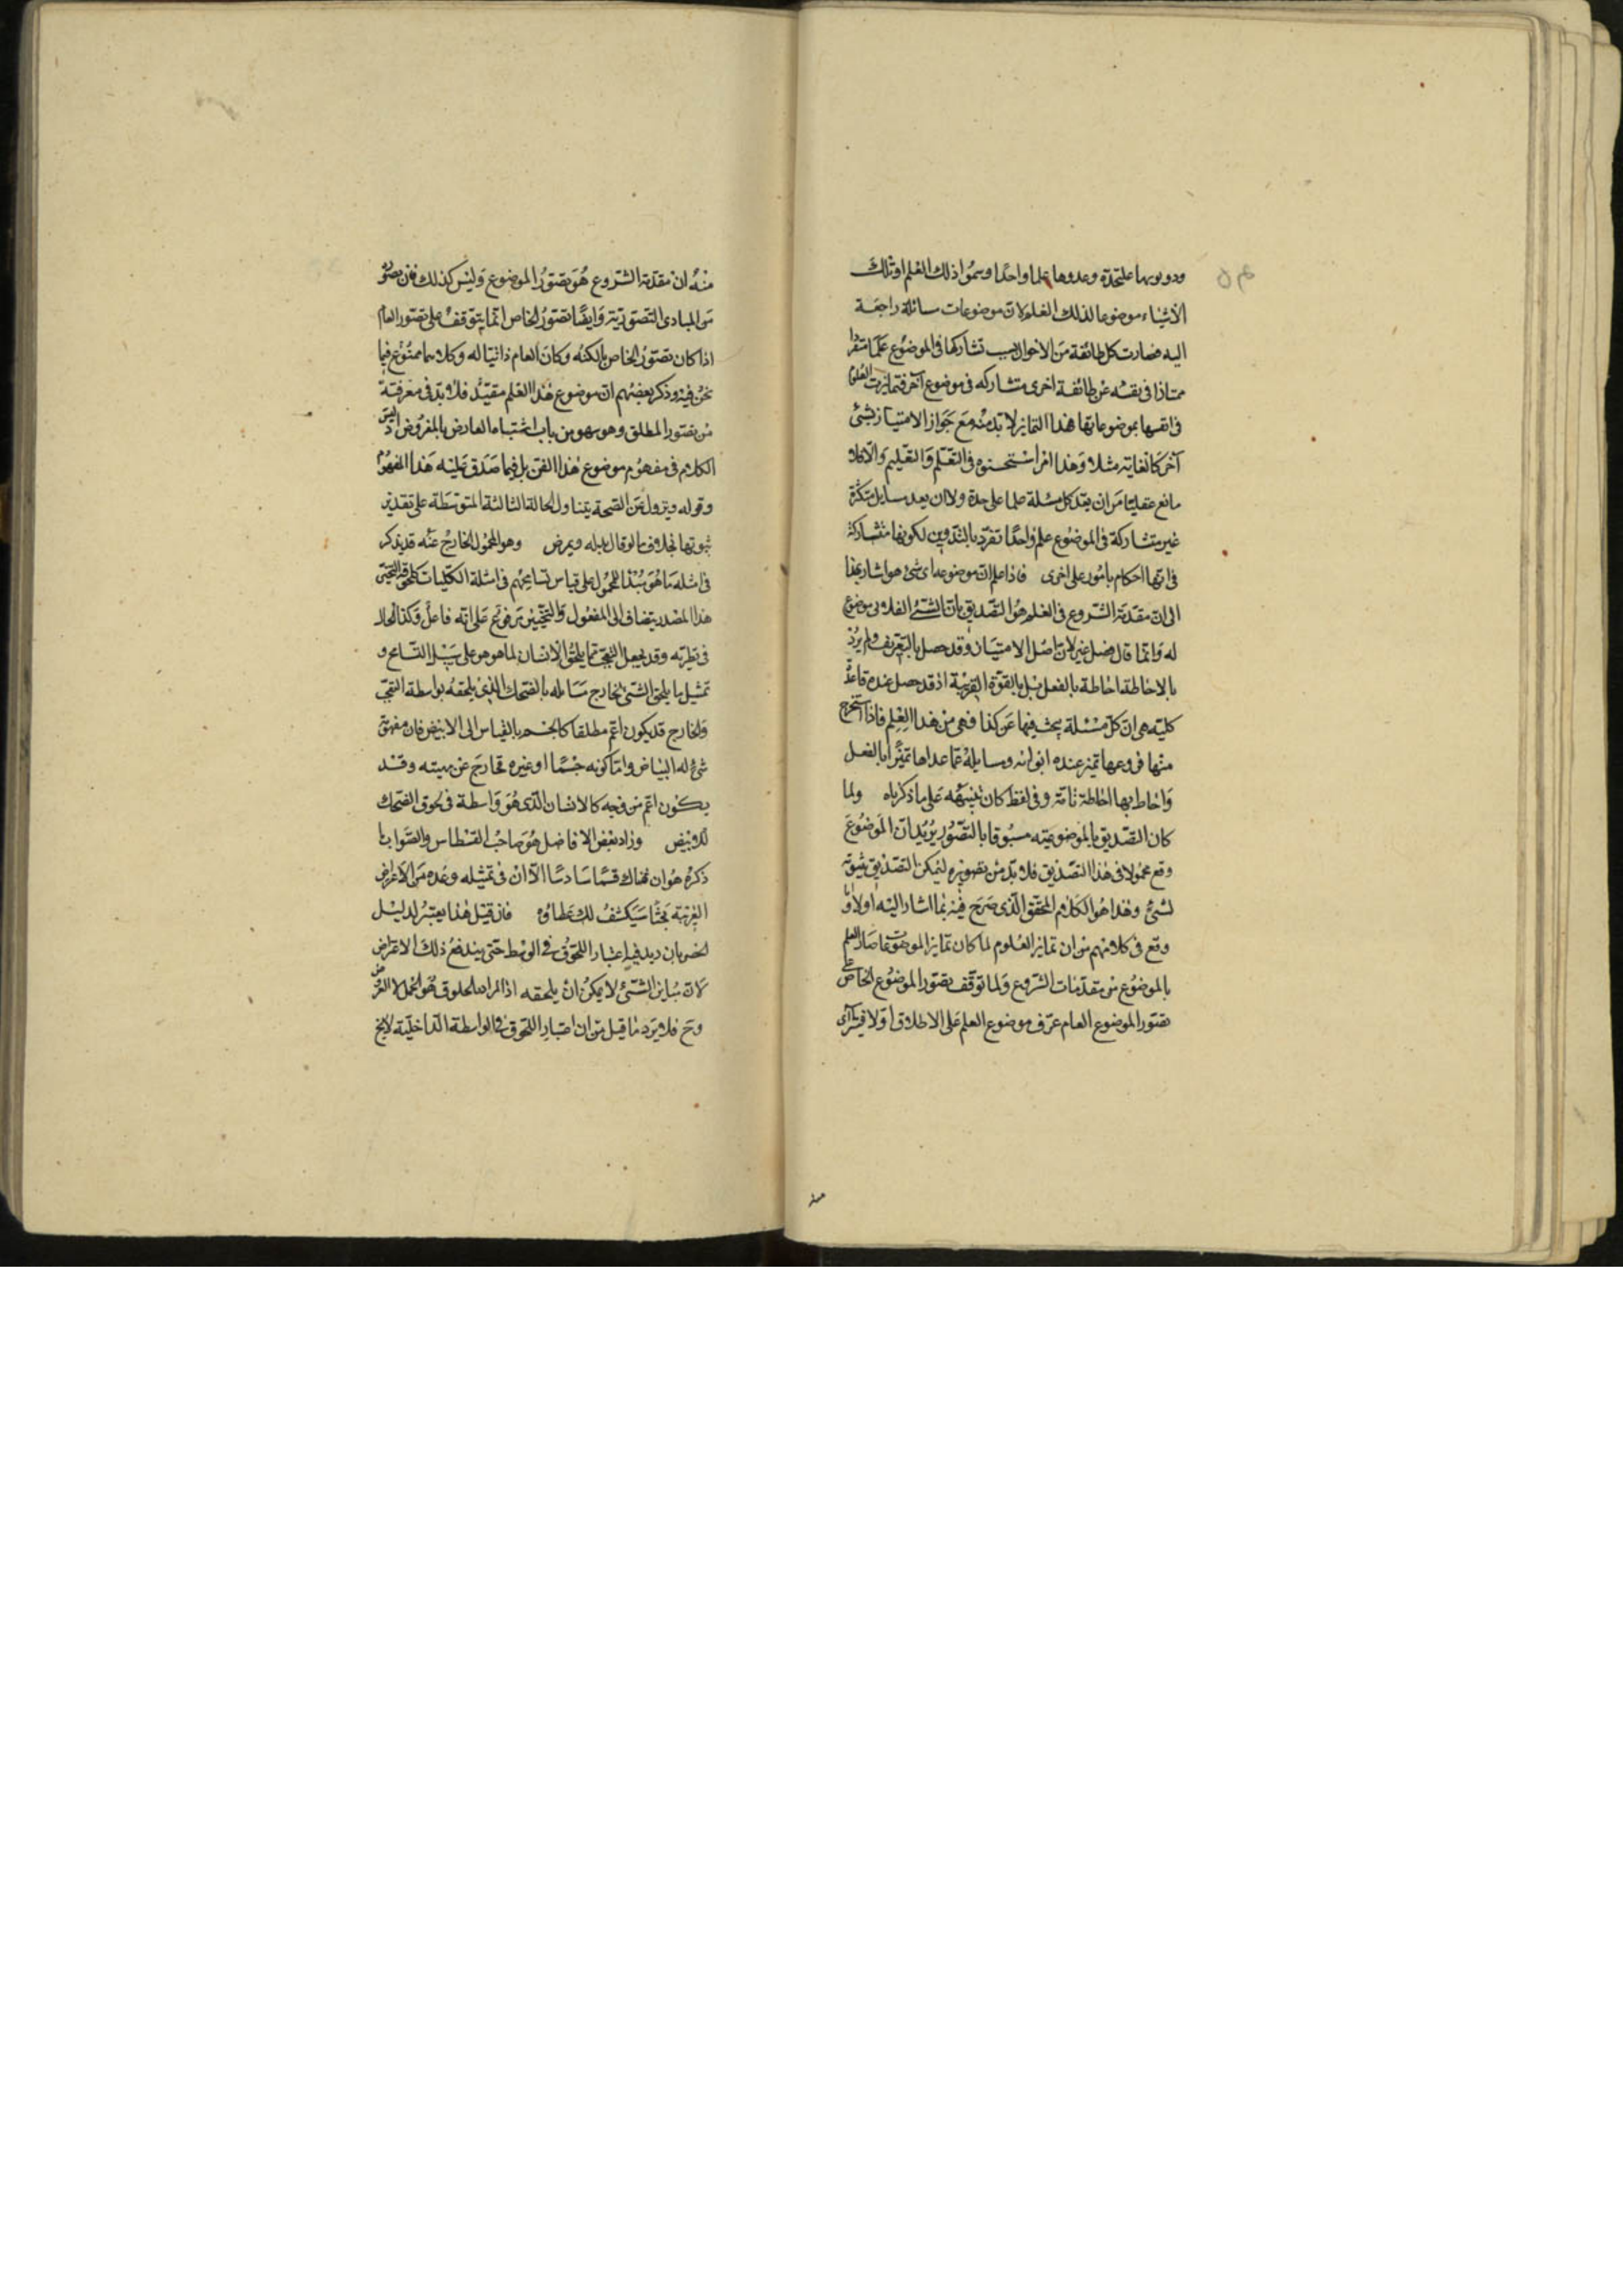 ودونوبها عليحدة وعدوها علما واحدا وسموا ذلك العلم او تلك
الاشياء موضوعا لذلك العلم لان موضوعات مسائله راجعة
اليه فصارت كل طائفة من الاحوال بسبب تشاركها فى الموضوع علما منفردا
ممتازا فى نفسه عن طائفة اخرى متشاركه فى موضوع آخر فتمايزت العلوم
فى انفسها بموضوعاتها هذا التمايز لا بد منه مع جواز الامتياز بشئ
آخر كالغاية مثلا وهذا امر استحسنوه فى التعلم والتعليم والا فلا
مانع عقليا من ان يعد كل مسئلة علما على حدة ولا ان يعد مسايل متكثرة
غير متشاركة فى الموضوع علما واحدا تفرد بالتدوين لكونها متشاركة
فى انها احكام بامور على اخرى فاذا علم ان موضوعه اى شئ هو اشار بهذا
الى ان مقدمة الشروع فى العلم هو التصديق بان الشئ الفلانى موضوع
له وانما قال فضل تميز لان اصل الامتياز قد حصل بالتعريف ولم يرد
بالاحاطة احاطة بالفعل بل بالقوة القريبة اذ قد حصل عنده قاعدة
كلية هى ان كل مسئلة يبحث فيها عن كذا فهى من هذا العلم فاذا استخرج
منها فروعها تميز عنده ابوابه ومسايله عما عداها تميزا بالفعل
واحاط بها احاطة تامة وفى لفظ كان تنبيه على ما ذكرناه ولما
كان التصديق بالموضوعيته مسبوقا بالتصور يريد ان الموضوع
وقع محمولا فى هذا التصديق فلا بد من تصويره ليمكن التصديق بثبوته
لشئ وهذا هو الكلام المحقق الذى صرح فيه بما اشار اليه اولا وما
وقع فى كلامهم من ان تمايز العلوم لما كان تمايز الموضوعات صار العلم
بالموضوع من مقدمات الشروع ولما توقف تصور الموضوع الخاص على
تصور الموضوع العام عرف موضوع العلم على الاطلاق اولا
منه ان مقدمة الشروع هو تصور الموضوع وليس كذلك فان تصور
من المبادى التصورية وايضا تصور الخاص انما يتوقف على تصور العام
اذا كان تصور الخاص بالكنه وكان العام ذاتيا له وكلاهما ممنوع فيما
نحن فيه وذكر بعضهم ان موضوع هذا العلم مقيد فلا بد فى معرفته
من تصور المطلق وهو سهو من باب اشتباه العارض بالمعروض اذ ليس
الكلام فى مفهوم موضوع هذا الفن بل فيما صدق عليه هذا المفهوم
وقوله ويزول عن الصحة يتناول الحالة الثالثة المتوسطة على تقدير
ثبوتها بخلاف ما لو قال بدله ويمرض وهو المحمول الخارج عنه قد يذكر
فى امثلة ما هو مبدأ المحمول على قياس تسامحهم فى امثلة الكليات كلحوق التعجب
هذا المصدر يضاف الى المفعول والتعجب مرفوع على انه فاعل وكذا الحال
فى نظيرته وقد يجعل التعجب مما يلحق الانسان لما هو هو على سبيل التسامح و
تمثيل ما يلحق الشئ لخارج مساو له بالضحك الذى يلحقه بواسطة التعجب
والخارج قد يكون اعم مطلقا كالجسم بالقياس الى الابيض فان مفهومه
شئ له البياض واما كونه جسما او غيره فخارج عن مهيته وقد
يكون اعم من وجه كالانسان الذى هو واسطة فى لحوق الضحك
للابيض وزاد بعض الافاضل هو صاحب القسطاس والصواب ما
ذكره هو ان هناك قسما سادسا الا ان فى تمثيله وعده من الاعراض
الغريبة بحثا سينكشف لك غطاؤه فان قيل هذا يعتبر لدليل
الحصر بان زيد فيه اعتبار اللحوق فى الوسط حتى يندفع ذلك الاعتراض
لان مباين الشئ لا يمكن ان يلحقه اذ المراد باللحوق هو الحمل لا العروض
وح فلا يرد ما قيل من ان اعتبار اللحوق فى الواسطة الداخلية لا يخ
منه